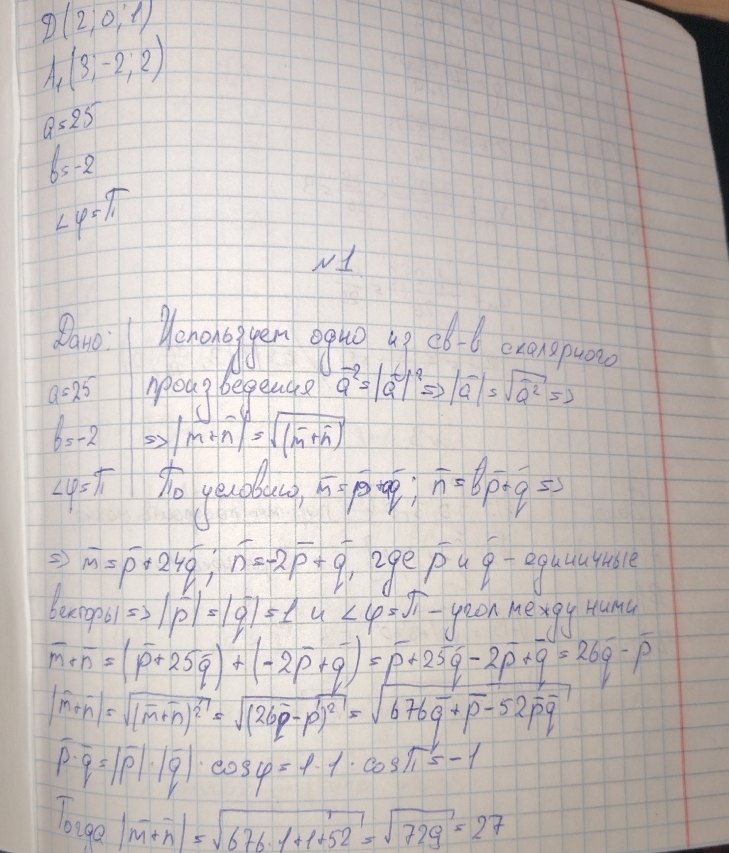 D(2; 0; 1)
A₁(3; -2; 2)
a=25
b=-2
∠φ=π
№1
Дано: Использует одно из св-в скалярного
a=25 произведения a̅²=|a̅|²=>|a̅|=√a̅²=>
b=-2 =>|m̅+n̅|=√(m̅+n̅)
∠φ=π По условию, m̅=p̅+aq̅; n̅=bp̅+q̅=>
=> m̅=p̅+24q̅; n̅=-2p̅+q̅, где p̅ и q̅ - единичные
векторы=>|p̅|=|q̅|=1 и ∠φ=π - угол между ними
m̅+n̅=(p̅+25q̅)+(-2p̅+q̅)=p̅+25q̅-2p̅+q̅=26q̅-p̅
|m̅+n̅|=√(m̅+n̅)²=√(26q̅-p̅)²=√676q̅+p̅-52p̅q̅
p̅·q̅=|p̅|·|q̅|·cosφ=1·1·cosπ=-1
Тогда |m̅+n̅|=√676·1+1+52=√729=27